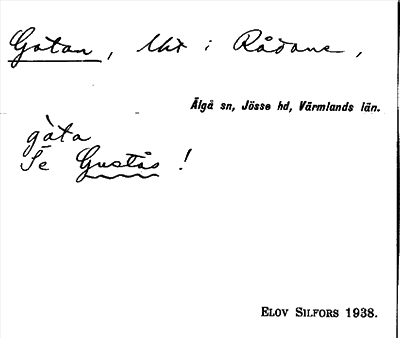 Gatan, lht i Rådane,
Älgå sn, Jösse hd, Värmlands län.
gàta
Se Gustås !
ELOV SILFORS 1938.